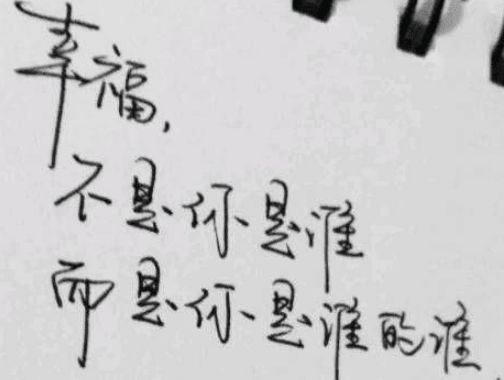 幸福,
不是你是谁
而是你是谁的谁